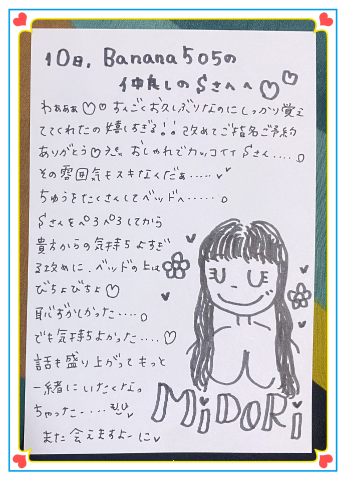 10日、Banana505の
仲良しのSさんへ♡♡
わぁぁぁ♡♡すんごくお久しぶりなのにしっかり覚え
ててくれたの嬉しすぎる!!改めてご指名ご予約
ありがとう♡
おしゃれでカッコイイSさん....。
その雰囲気もスキなんだぁ....
ちゅうをたくさんしてベッドへ......。
Sさんをペロペロしてから
貴方からの気持ちよすぎ
る攻めに、ベッドの上は
びちょびちょ♡
恥ずかしかった....。
でも気持ちよかった....♡
話も盛り上がってもっと
一緒にいたくな。
ちゃった....
また会えますよーに
MiDORi